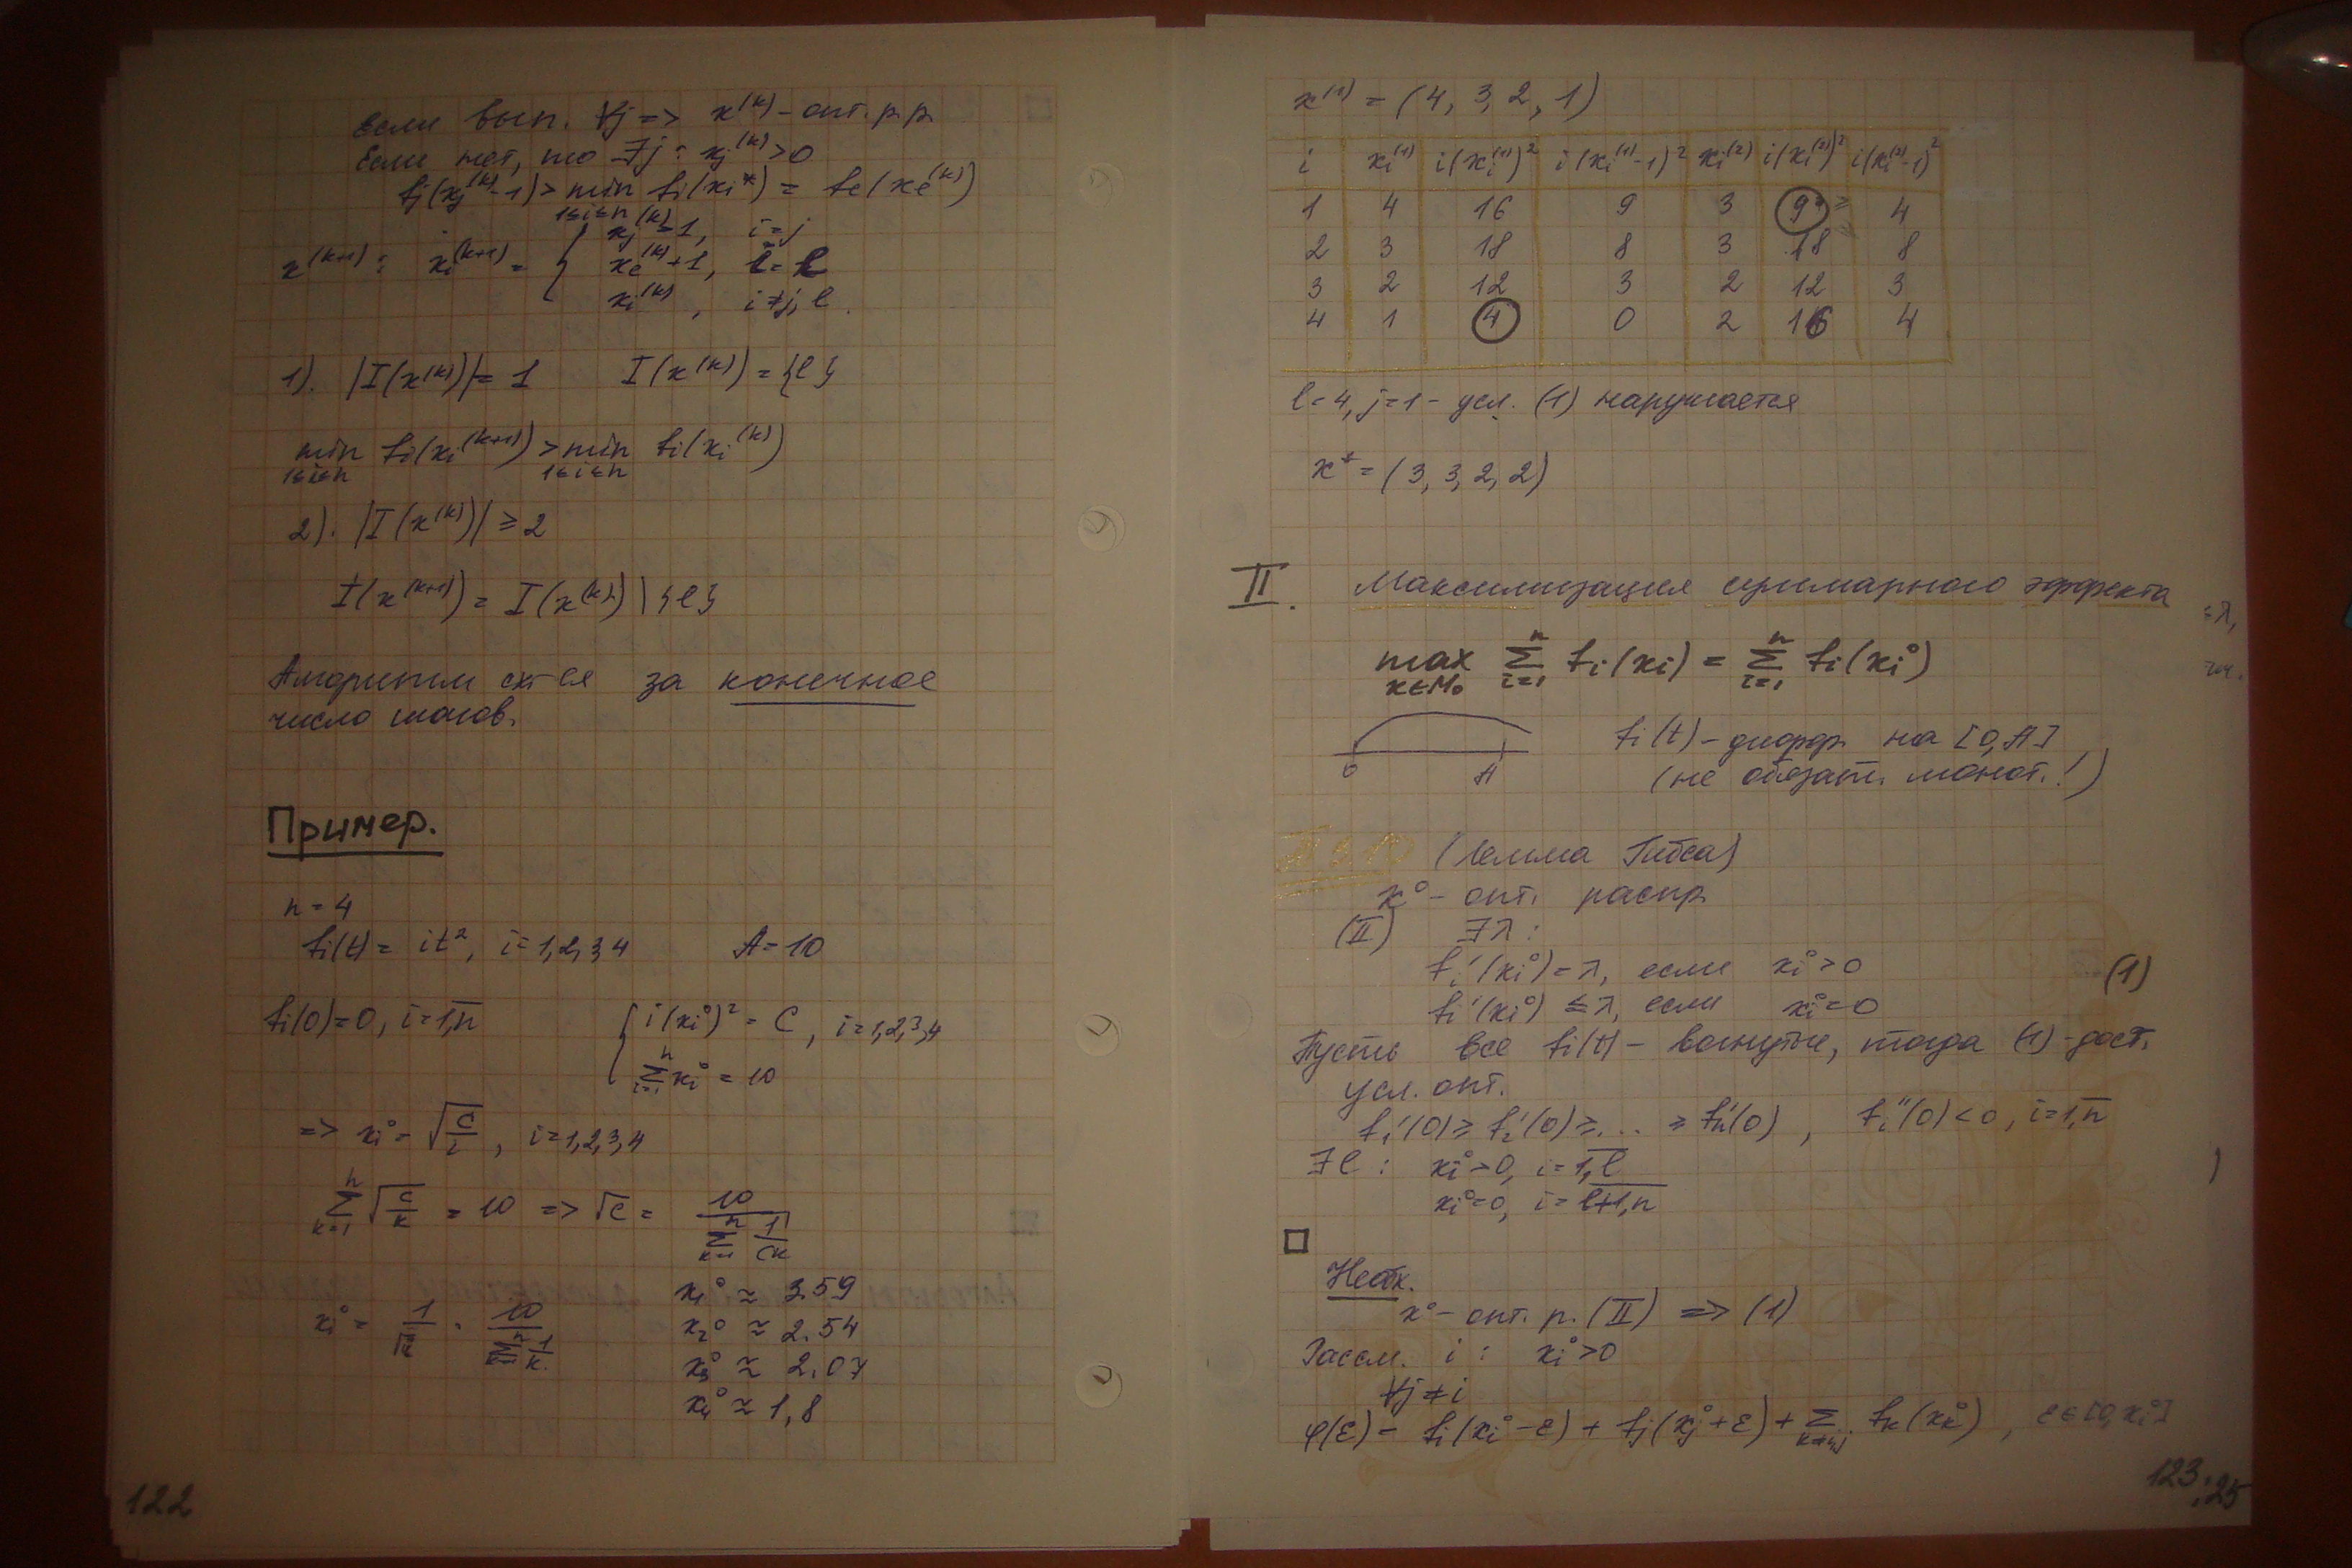 Если вып. ∀j => x^(k) - опт. р.р.
Если нет, то ∃j : xj^(k) > 0
fj(xj^(k)-1) > min fi(xi*) = fe(xe^(k))
1≤i≤n
x^(k+1) : xi^(k+1) = { xj^(k)-1, i=j
xe^(k)+1, i=l
xi^(k), i≠j, l.
1). |I(x^(k))| = 1 I(x^(k)) = {l}
min fi(xi^(k+1)) > min fi(xi^(k))
1≤i≤n 1≤i≤n
2). |I(x^(k))| ≥ 2
I(x^(k+1)) = I(x^(k)) \ {l}
Алгоритм сх-ся за конечное
число шагов.
Пример.
n = 4
fi(t) = it², i=1,2,3,4 A=10
fi(0)=0, i=1,n { i(xi°)² = C, i=1,2,3,4
Σ xi° = 10
=> xi° = √(C/i), i=1,2,3,4
Σ √(C/k) = 10 => √C = 10 / Σ 1/√k
xi° = 1/√i · 10 / Σ 1/k
x1° ≈ 3.59
x2° ≈ 2.54
x3° ≈ 2.07
x4° ≈ 1,8
122
x^(1) = (4, 3, 2, 1)
i xi^(1) i(xi^(1))² i(xi^(1)-1)² xi^(2) i(xi^(2))² i(xi^(2)-1)²
1 4 16 9 3 9 ≥ 4
2 3 18 8 3 18 8
3 2 12 3 2 12 3
4 1 4 0 2 16 4
l=4, j=1 - усл. (1) нарушается
x* = (3, 3, 2, 2)
II. Максимизация суммарного эффекта
max Σ fi(xi) = Σ fi(xi°)
x∈M₀ i=1 i=1
0 A
fi(t) - дифф. на [0,A]
(не обязат. монот.!)
(Лемма Гибса)
x° - опт. распр.
(II) ∃λ :
fi'(xi°) = λ, если xi° > 0
fi'(xi°) ≤ λ, если xi° = 0 (1)
Пусть все fi(t) - вогнутые, тогда (1) - дост.
усл. опт.
f1'(0) ≥ f2'(0) ≥ ... ≥ fn'(0), fi''(0) < 0, i=1,n
∃l : xi° > 0, i=1,l
xi° = 0, i=l+1,n
□
Необх.
x° - опт. р. (II) => (1)
Рассм. i : xi° > 0
∀j ≠ i
φ(ε) = fi(xi° - ε) + fj(xj° + ε) + Σ fk(xk°), ε∈[0,xi°]
k≠i,j
123
25